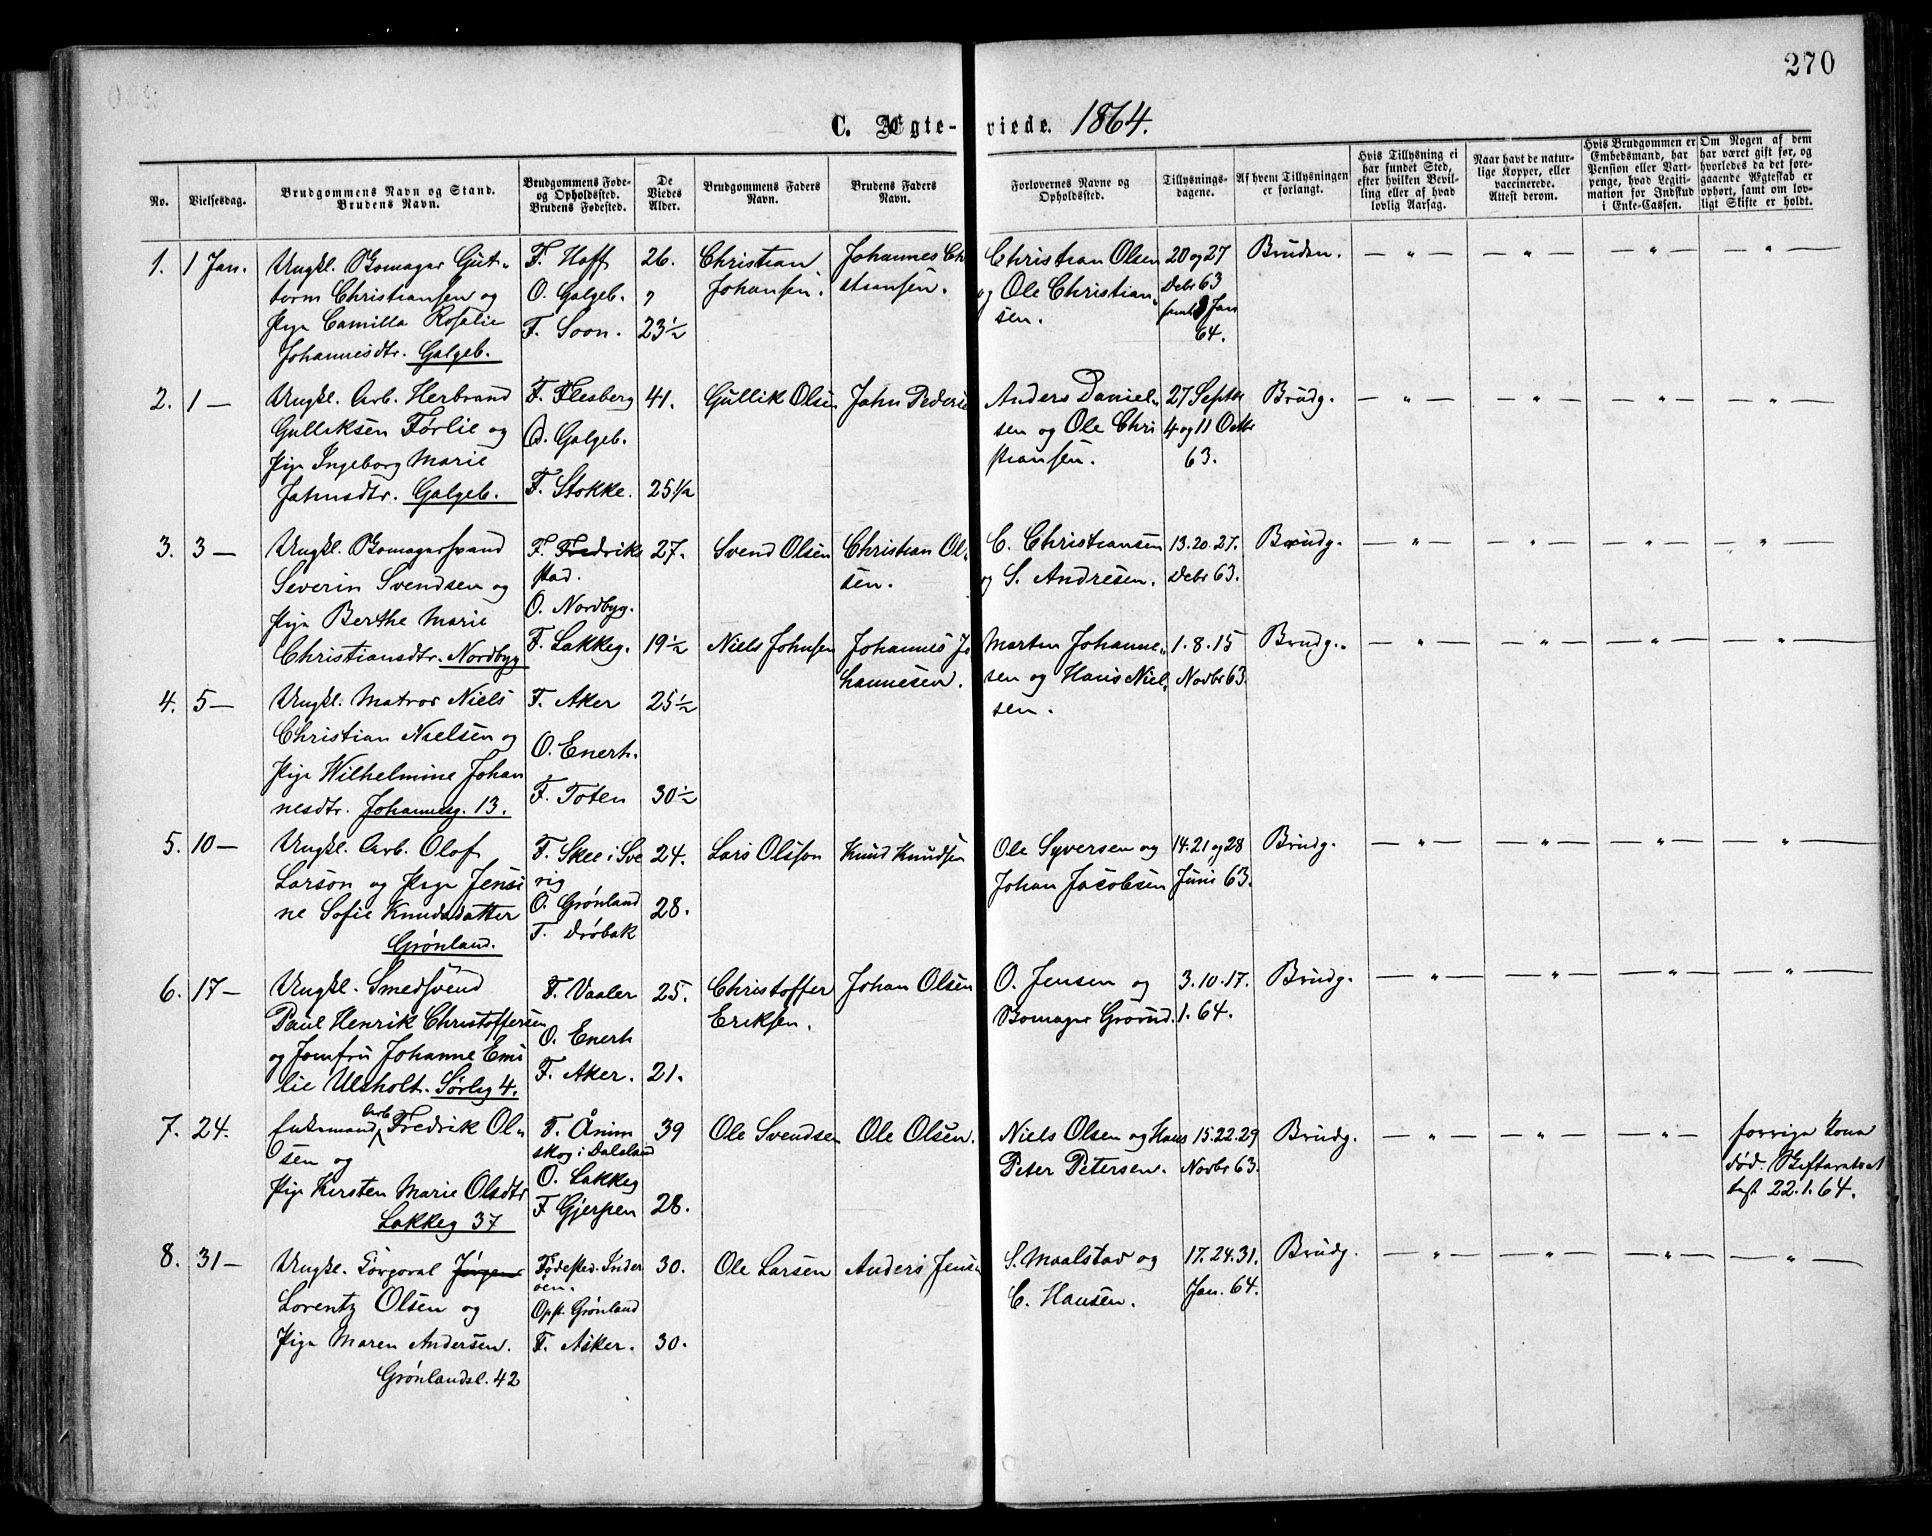 270
C. Ægte-viede. 1864.
No.
Vielsesdag.
Brudgommens Navn og Stand.
Brudens Navn.
Brudgommens Føde-
og Opholdssted.
Brudens Fødested.
De
Viedes
Alder.
Brudgommens Faders
Navn.
Brudens Faders
Navn.
Forlovernes Navne og
Opholdssted.
Tillysnings-
dagene.
Af hvem Tillysningen
er forlangt.
Hvis Tillysning ei
har fundet Sted,
efter hvilken Bevil-
ling eller af hvad
lovlig Aarsag.
Naar havt de natur-
lige Kopper, eller
vaccinerede.
Attest derom.
Hvis Brudgommen er
Embedsmand, har
Pension eller Vart-
penge, hvad Legiti-
mation for Indskud
i Enke-Cassen.
Om Nogen af dem
har været gift før, og
hvorledes da det fore-
gaaende Ægteskab er
ophørt, samt om lov-
ligt Skifte er holdt.
1. 1 Jan.
Ungkl. Bomager Gut-
torm Christiansen og
Pige Camilla Rosalie
Johannesdtr. Galgeb.
F. Hoff
O. Galgeb.
F. Soon.
26.
"
23½
Christian
Johansen.
Johannes Chr
stiansen.
Christian Olsen
og Ole Christian-
sen.
20 og 27
Debr 63
samt 1 Jan
64.
Bruden.
— " — — " — — " — — " —
2. 1 —
Ungkl. Arb. Herbrand
Gulliksen Førlie og
Pige Ingeborg Marie
Jahnsdtr. Galgeb.
F. Flesberg
O. Galgeb.
F. Stokke.
41.
25½
Gullik Olsen
Jahn Pederse
Anders Daniel-
sen og Ole Chri
stiansen.
27 Septbr
4 og 11 Octbr
63.
Brudg.
— " — — " — — " — — " —
3. 3 —
Ungkl. Bomagersvend
Severin Svendsen og
Pige Berthe Marie
Christiansdtr. Nordbyg
F. Fredrik
stad.
O. Nordbyg.
F. Lakkeg.
27.
19½
Svend Olsen
Christian Ol-
sen.
C. Christiansen
og S. Andresen.
13. 20. 27.
Debr 63.
Brudg.
— " — — " — — " — — " —
4. 5 —
Ungkl. Matros Niels
Christian Nielsen og
Pige Wilhelmine Johan
nesdtr. Johannesg. 13.
F. Aker
O. Enerh.
F. Toten
25½
30½
Niels Johnsen
Johannes Jo
hannesen.
Morten Johanne-
sen og Hans Niel-
sen.
1. 8. 15
Novbr 63.
Brudg.
— " — — " — — " — — " —
5. 10 —
Ungkl. Arb. Olof
Larson og Pige Jensi
ne Sofie Knudsdatter
Grønland.
F. Skee i Sve
rig
O. Grønland
F. Drøbak
24.
28.
Lars Olsson
Knud Knudsen
Ole Syversen og
Johan Jacobsen
14. 21 og 28
Juni 63.
Brudg.
— " — — " — — " — — " —
6. 17 —
Ungkl. Smedsvend
Paul Henrik Christoffersen
og Jomfru Johanne Emi
lie Ulsholt. Sørlig 4.
F. Vaaler
O. Enerh
F. Aker.
25.
21.
Christoffer
Eriksen.
Johan Olsen
O. Jensen og
Bomager Grorud.
3. 10. 17.
1. 64.
Brudg.
— " — — " — — " — — " —
7. 24.
Enkemand Arb. Fredrik Ol-
sen og
Pige Kirsten Marie Olsdtr
Lakkeg 37
F. Ånim
skog i Dalsland
O. Lakkeg
F Gjerpen
39
28.
Ole Svendsen
Ole Olsen.
Niels Olsen og Hans
Peter Petersen.
15. 22. 29
Novbr 63.
Brudg.
— " — — " — — " —
forrige Kone
død. Skifteratest
22. 1. 64.
8. 31 —
Ungkl. Jørgen
Lorentz Olsen og
Pige Maren Andersen.
Grønlandsl. 42
Fødested. Inder
øen.
Opst. Grønland
F. Asker.
30.
30.
Ole Larsen
Anders Jensen
S. Maalstad og
C. Hansen.
17. 24. 31.
Jan. 64.
Brudg.
— " — — " — — " — — " —